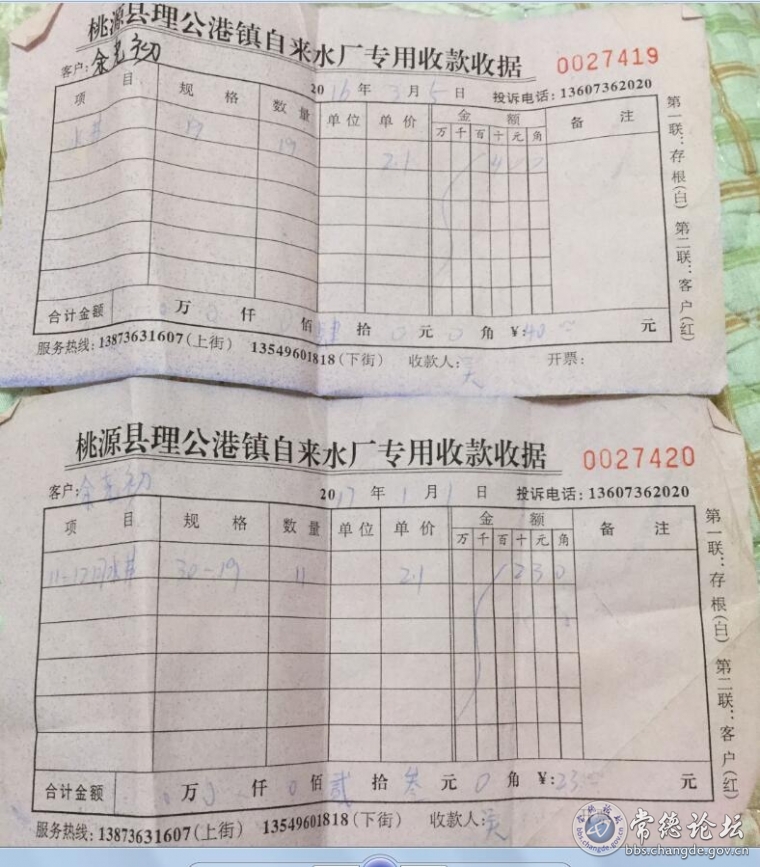 桃源县理公港镇自来水厂专用收款收据 0027419
客户:余老初
2016年3月5日 投诉电话:13607362020
项目 规格 数量 单位 单价 金额 备注
万 千 百 十 元 角
19 19 2.1 4 0 0
合计金额 0万0仟0佰肆拾0元0角 ¥:40 元
服务热线:13873631607(上街) 13549601818(下街) 收款人: 开票:
第一联:存根(白) 第二联:客户(红)
桃源县理公港镇自来水厂专用收款收据 0027420
客户:余老初
2017年1月1日 投诉电话:13607362020
项目 规格 数量 单位 单价 金额 备注
万 千 百 十 元 角
11-12月水费 30-19 11 2.1 2 3 0
合计金额 0万0仟0佰贰拾叁元0角 ¥:23 元
服务热线:13873631607(上街) 13549601818(下街) 收款人:
第一联:存根(白) 第二联:客户(红)
常德论坛
bbs.changde.gov.cn